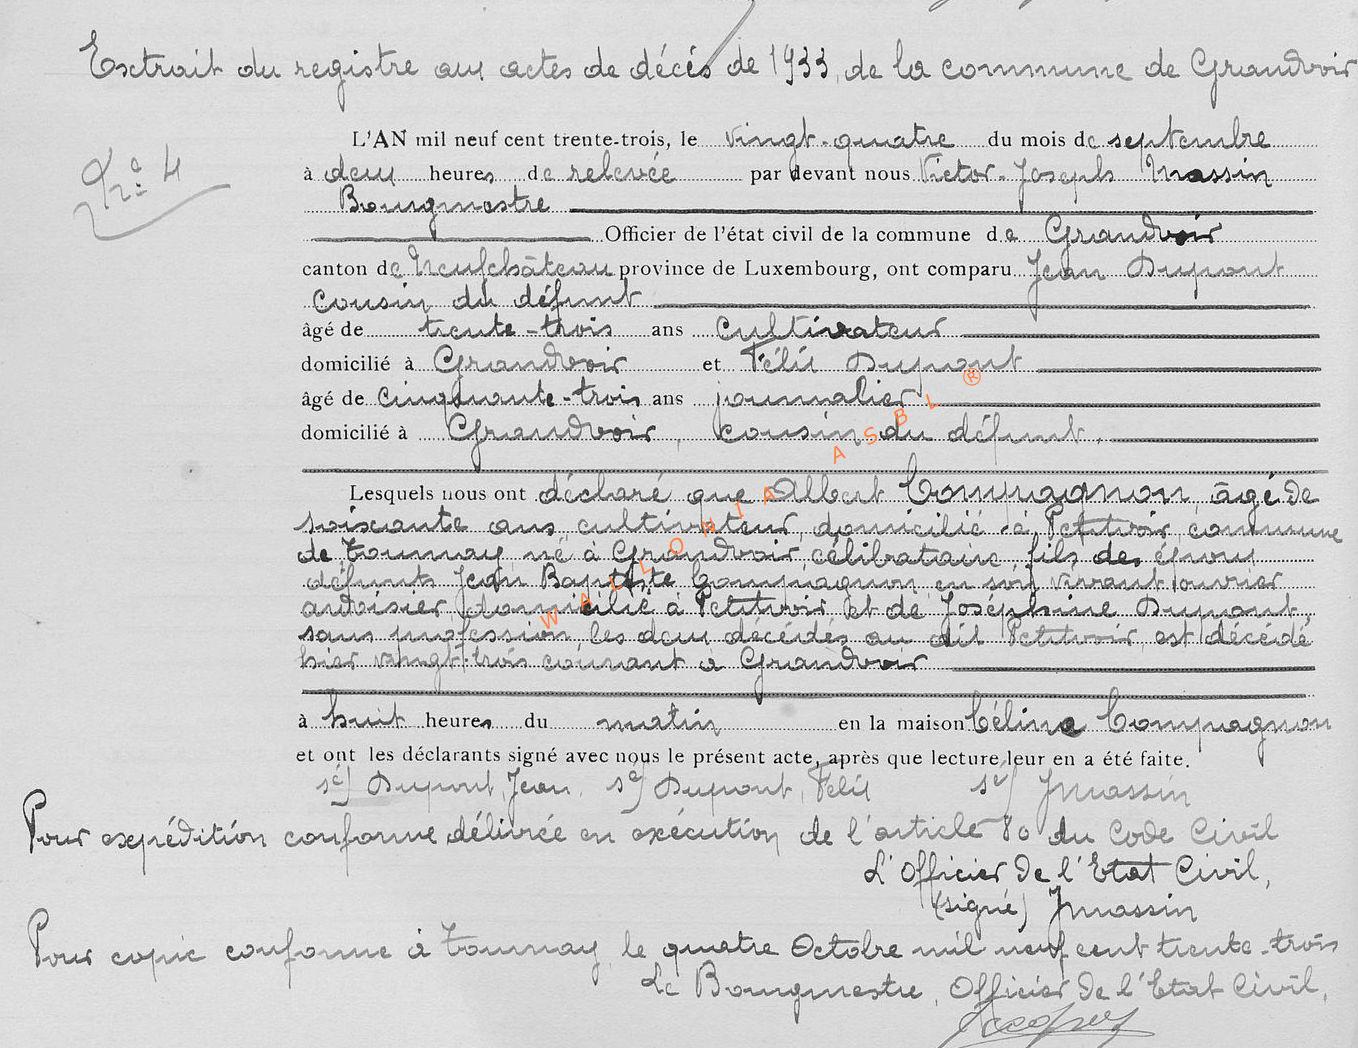 Extrait du registre aux actes de décés de 1933, de la commune de Grandvoir
N° 4
L'AN mil neuf cent trente-trois, le vingt-quatre du mois de septembre
à deux heures de relevée par devant nous Victor-Joseph Massin
Bourgmestre
Officier de l'état civil de la commune de Grandvoir
canton de Neufchâteau province de Luxembourg, ont comparu Jean Dupont
cousin du défunt
âgé de trente-trois ans cultivateur
domicilié à Grandvoir et Félix Dupont
âgé de cinquante-trois ans journalier
domicilié à Grandvoir, cousin du défunt.
Lesquels nous ont déclaré que Albert Compagnon, âgé de
soixante ans, cultivateur, domicilié à Petitvoir, commune
de Tournay, né à Grandvoir, célibataire, fils des époux
défunts Jean Baptiste Compagnon, en son vivant, ouvrier
ardoisier, domicilié à Petitvoir et de Joséphine Dupont,
sans profession les deux décédés au dit Petitvoir, est décédé
hier vingt-trois courant à Grandvoir
à huit heures du matin en la maison Céline Compagnon
et ont les déclarants signé avec nous le présent acte, après que lecture leur en a été faite.
sé) Dupont, Jean, sé) Dupont, Félix sé) JMassin
Pour expédition conforme délivrée en exécution de l'article 80 du Code Civil
L'Officier de l'Etat Civil,
(signé) JMassin
Pour copie conforme à Tournay, le quatre Octobre mil neuf cent trente-trois
Le Bourgmestre, Officier de l'Etat Civil,
WALLONIA ASBL ®